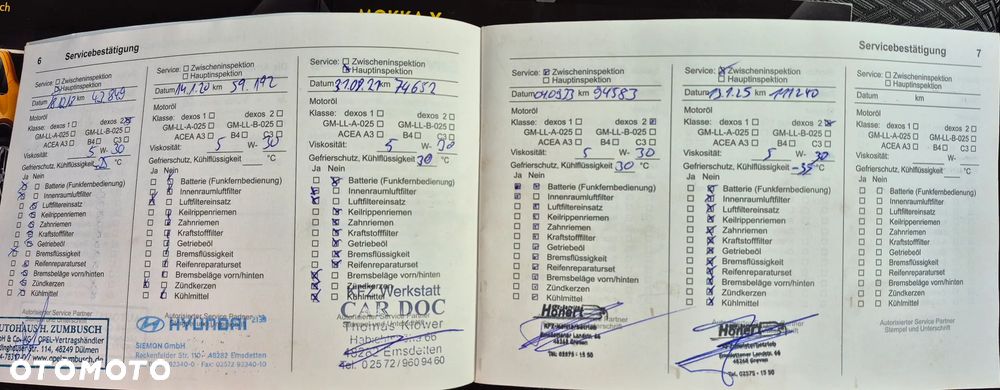 MOKKA X
6 Servicebestätigung
Service: Zwischeninspektion
Hauptinspektion
Datum km 42849
Motoröl
Klasse: dexos 1 dexos 2
GM-LL-A-025 GM-LL-B-025
ACEA A3 B4 C3
Viskosität: 5 W- 30
Gefrierschutz, Kühlflüssigkeit °C
Ja Nein
Batterie (Funkfernbedienung)
Innenraumluftfilter
Luftfiltereinsatz
Keilrippenriemen
Zahnriemen
Kraftstofffilter
Getriebeöl
Bremsflüssigkeit
Reifenreparaturset
Bremsbeläge vorn/hinten
Zündkerzen
Kühlmittel
Autorisierter Service Partner
AUTOHAUS H. ZUMBUSCH
GmbH & Co. KG / OPEL-Vertragshändler
Str. 114, 48249 Dülmen
www.opelzumbusch.de
Service: Zwischeninspektion
Hauptinspektion
Datum 14.1.20 km 59.172
Motoröl
Klasse: dexos 1 dexos 2
GM-LL-A-025 GM-LL-B-025
ACEA A3 B4 C3
Viskosität: 5 W- 30
Gefrierschutz, Kühlflüssigkeit °C
Ja Nein
Batterie (Funkfernbedienung)
Innenraumluftfilter
Luftfiltereinsatz
Keilrippenriemen
Zahnriemen
Kraftstofffilter
Getriebeöl
Bremsflüssigkeit
Reifenreparaturset
Bremsbeläge vorn/hinten
Zündkerzen
Kühlmittel
Autorisierter Service Partner
HYUNDAI
SIEMON GmbH
Reckenfelder Str. 110 - 48282 Emsdetten
Fax: 02572 93340-10
Service: Zwischeninspektion
Hauptinspektion
Datum 31.08.21 km 74652
Motoröl
Klasse: dexos 1 dexos 2
GM-LL-A-025 GM-LL-B-025
ACEA A3 B4 C3
Viskosität: 5 W- 30
Gefrierschutz, Kühlflüssigkeit 30 °C
Ja Nein
Batterie (Funkfernbedienung)
Innenraumluftfilter
Luftfiltereinsatz
Keilrippenriemen
Zahnriemen
Kraftstofffilter
Getriebeöl
Bremsflüssigkeit
Reifenreparaturset
Bremsbeläge vorn/hinten
Zündkerzen
Kühlmittel
Autorisierter Service Partner
Stempel und Unterschrift
KFZ-Werkstatt
CAR DOC
Thomas Klöwer
48282 Emsdetten
Tel. 0 25 72 / 960 94 60
Servicebestätigung 7
Service: Zwischeninspektion
Hauptinspektion
Datum km 94583
Motoröl
Klasse: dexos 1 dexos 2
GM-LL-A-025 GM-LL-B-025
ACEA A3 B4 C3
Viskosität: 5 W- 30
Gefrierschutz, Kühlflüssigkeit 30 °C
Ja Nein
Batterie (Funkfernbedienung)
Innenraumluftfilter
Luftfiltereinsatz
Keilrippenriemen
Zahnriemen
Kraftstofffilter
Getriebeöl
Bremsflüssigkeit
Reifenreparaturset
Bremsbeläge vorn/hinten
Zündkerzen
Kühlmittel
Hönert
KFZ-Meisterbetrieb
Emsdettener Landstr. 66
48268 Greven
Tel. 02575 - 15 50
Service: Zwischeninspektion
Hauptinspektion
Datum 13.1.25 km 111240
Motoröl
Klasse: dexos 1 dexos 2
GM-LL-A-025 GM-LL-B-025
ACEA A3 B4 C3
Viskosität: 5 W- 30
Gefrierschutz, Kühlflüssigkeit -35 °C
Ja Nein
Batterie (Funkfernbedienung)
Innenraumluftfilter
Luftfiltereinsatz
Keilrippenriemen
Zahnriemen
Kraftstofffilter
Getriebeöl
Bremsflüssigkeit
Reifenreparaturset
Bremsbeläge vorn/hinten
Zündkerzen
Kühlmittel
Hönert
KFZ-Meisterbetrieb
Emsdettener Landstr. 66
48268 Greven
Tel. 02575 - 15 50
Service: Zwischeninspektion
Hauptinspektion
Datum km
Motoröl
Klasse: dexos 1 dexos 2
GM-LL-A-025 GM-LL-B-025
ACEA A3 B4 C3
Viskosität: W-
Gefrierschutz, Kühlflüssigkeit °C
Ja Nein
Batterie (Funkfernbedienung)
Innenraumluftfilter
Luftfiltereinsatz
Keilrippenriemen
Zahnriemen
Kraftstofffilter
Getriebeöl
Bremsflüssigkeit
Reifenreparaturset
Bremsbeläge vorn/hinten
Zündkerzen
Kühlmittel
Autorisierter Service Partner
Stempel und Unterschrift
OTOMOTO